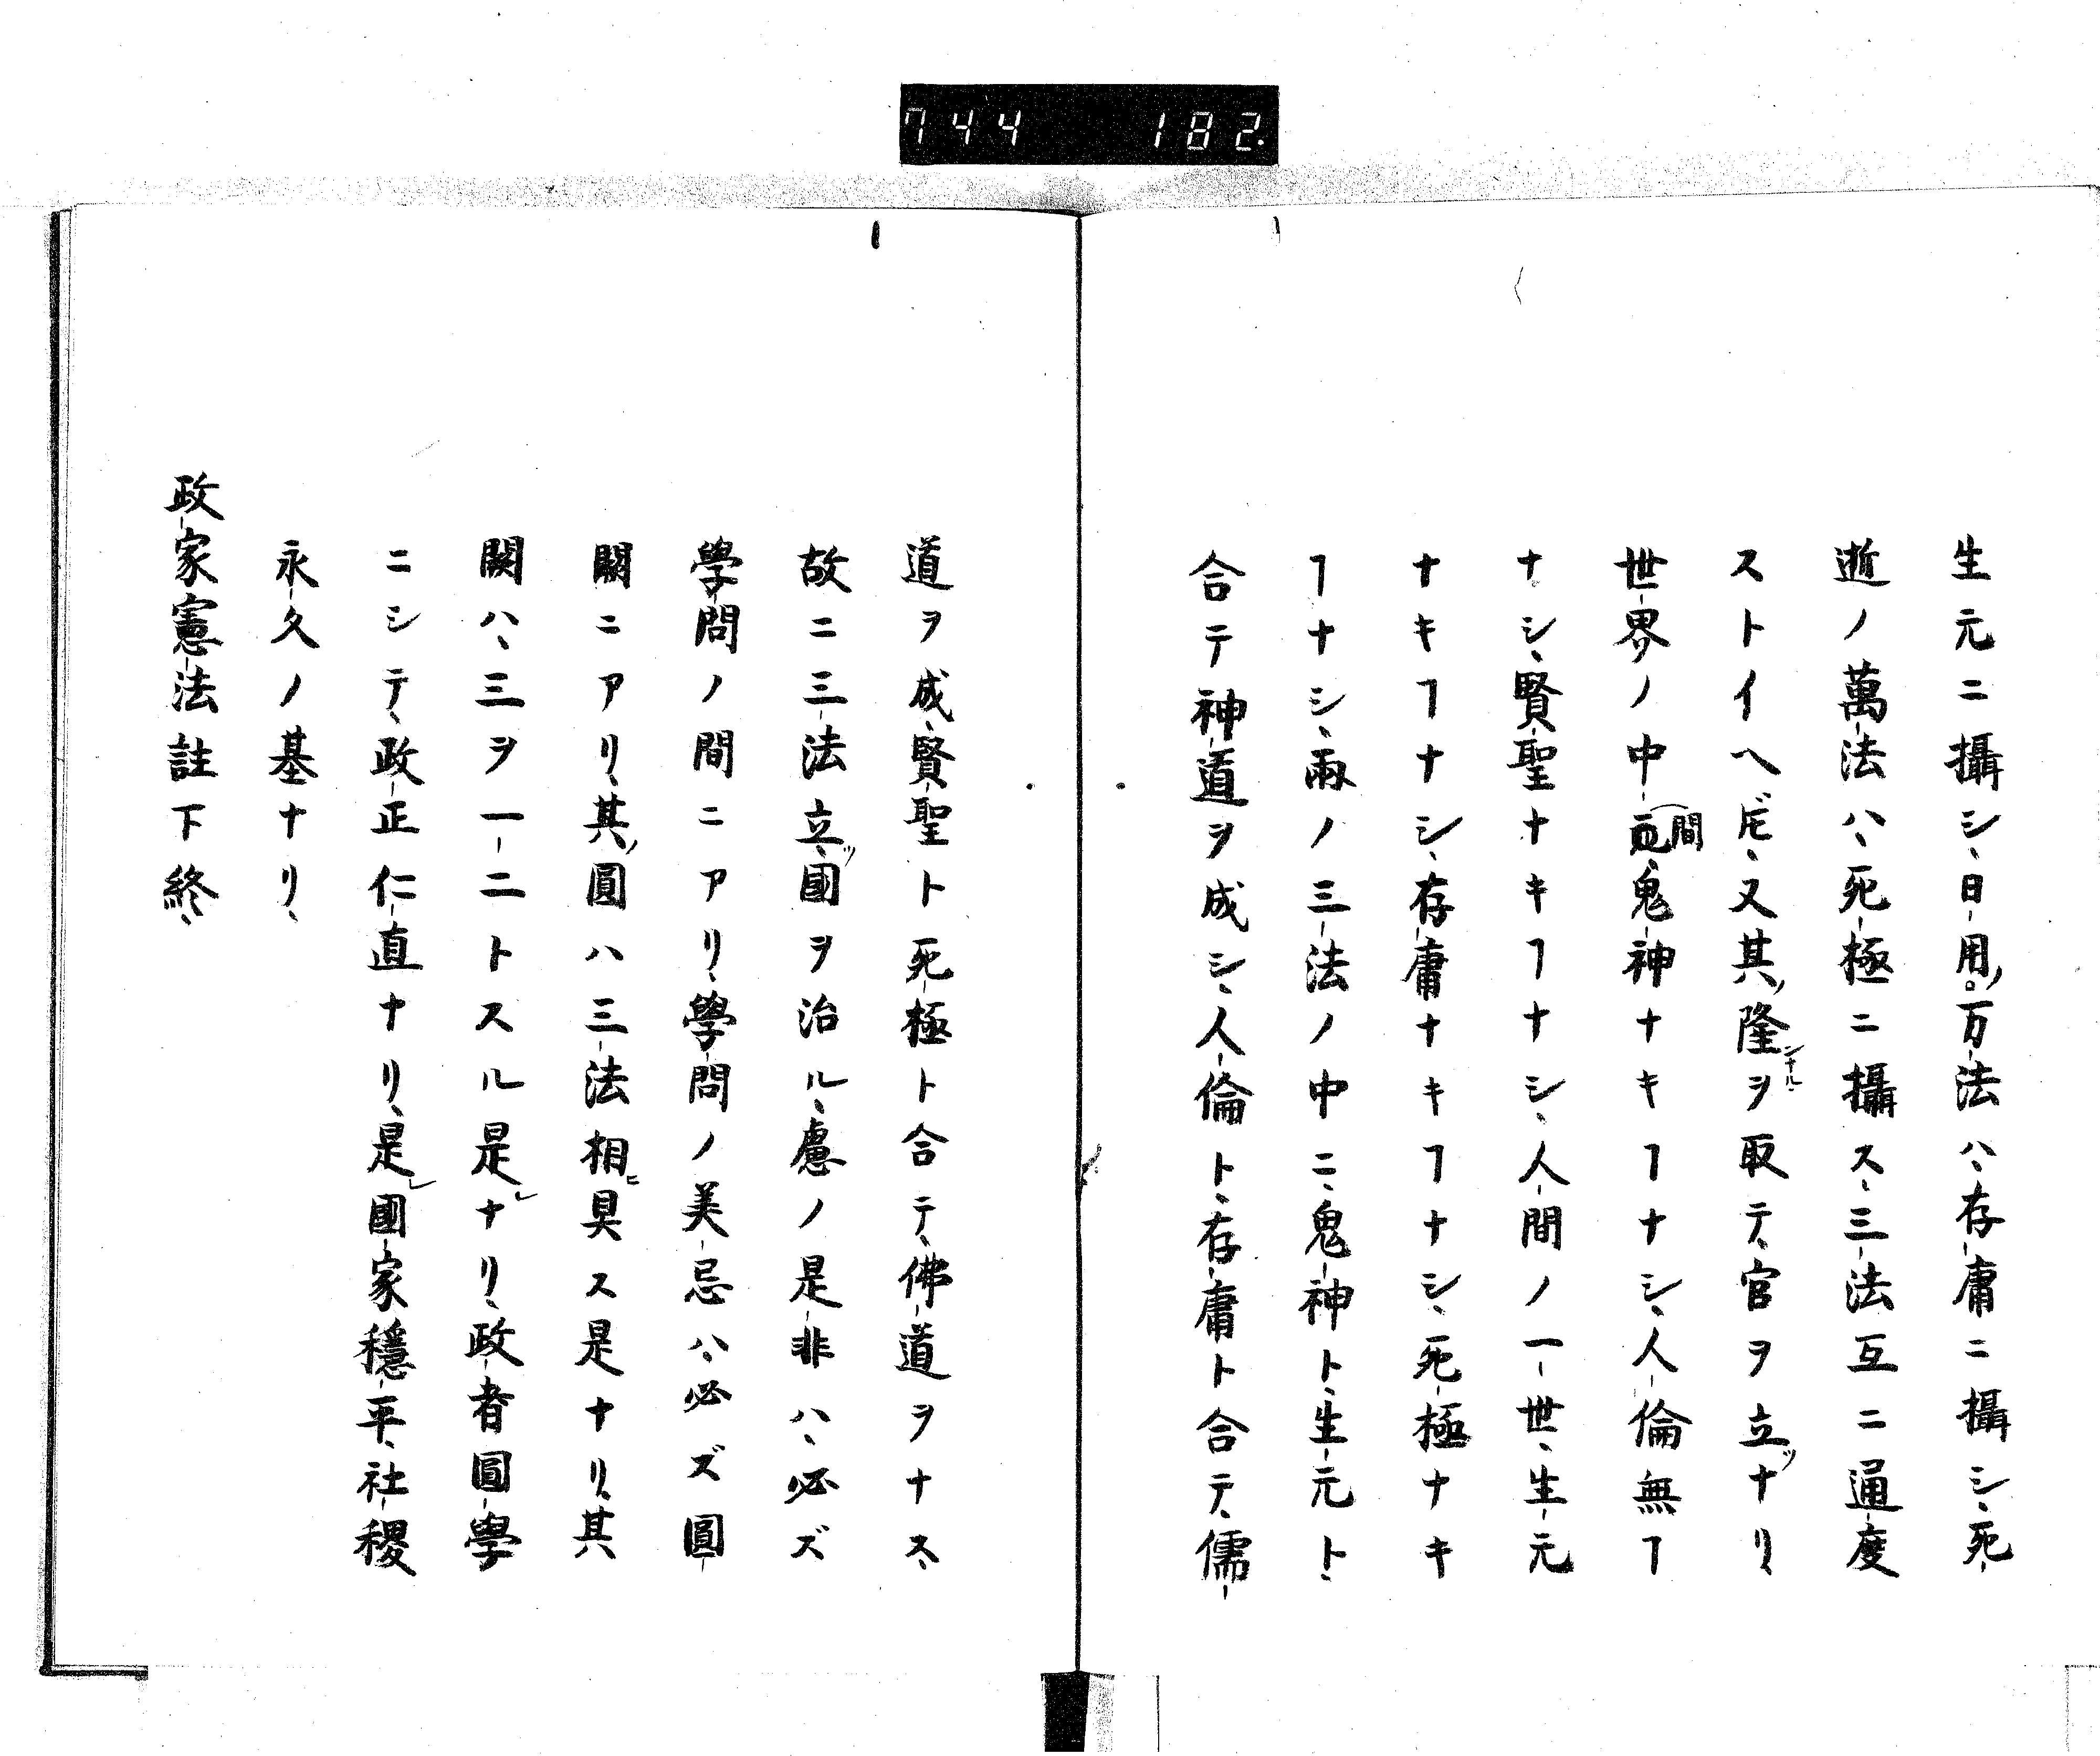 744 182.
生元ニ攝シ、日用ノ万法ハ、存庸ニ攝シ、死
逝ノ萬法ハ、死極ニ攝ス、三法互ニ通度
ストイヘドモ、又其ノ隆シナルヲ取テ、官ヲ立ツナリ、
世界ノ中間、鬼神ナキヿナシ、人倫無ヿ
ナシ、賢聖ナキヿナシ、人間ノ一世、生元
ナキヿナシ、存庸ナキヿナシ、死極ナキ
ヿナシ、兩ノ三法ノ中ニ、鬼神ト、生元ト、
合テ神道ヲ成シ、人倫ト、存庸ト合テ、儒
道ヲ成、賢聖ト死極ト合テ、佛道ヲナス、
故ニ三法立ツ、國ヲ治ル、慮ノ是非ハ、必ズ
學問ノ間ニアリ、學問ノ美忌ハ、必ズ圓
闕ニアリ、其ノ圓ハ三法相ヒ具ス是ナリ、其
闕ハ、三ヲ一二トスル是レナリ、政者圓學
ニシテ、政正仁直ナリ、是レ國家穩平、社稷
永久ノ基ナリ、
政家憲法註下終、